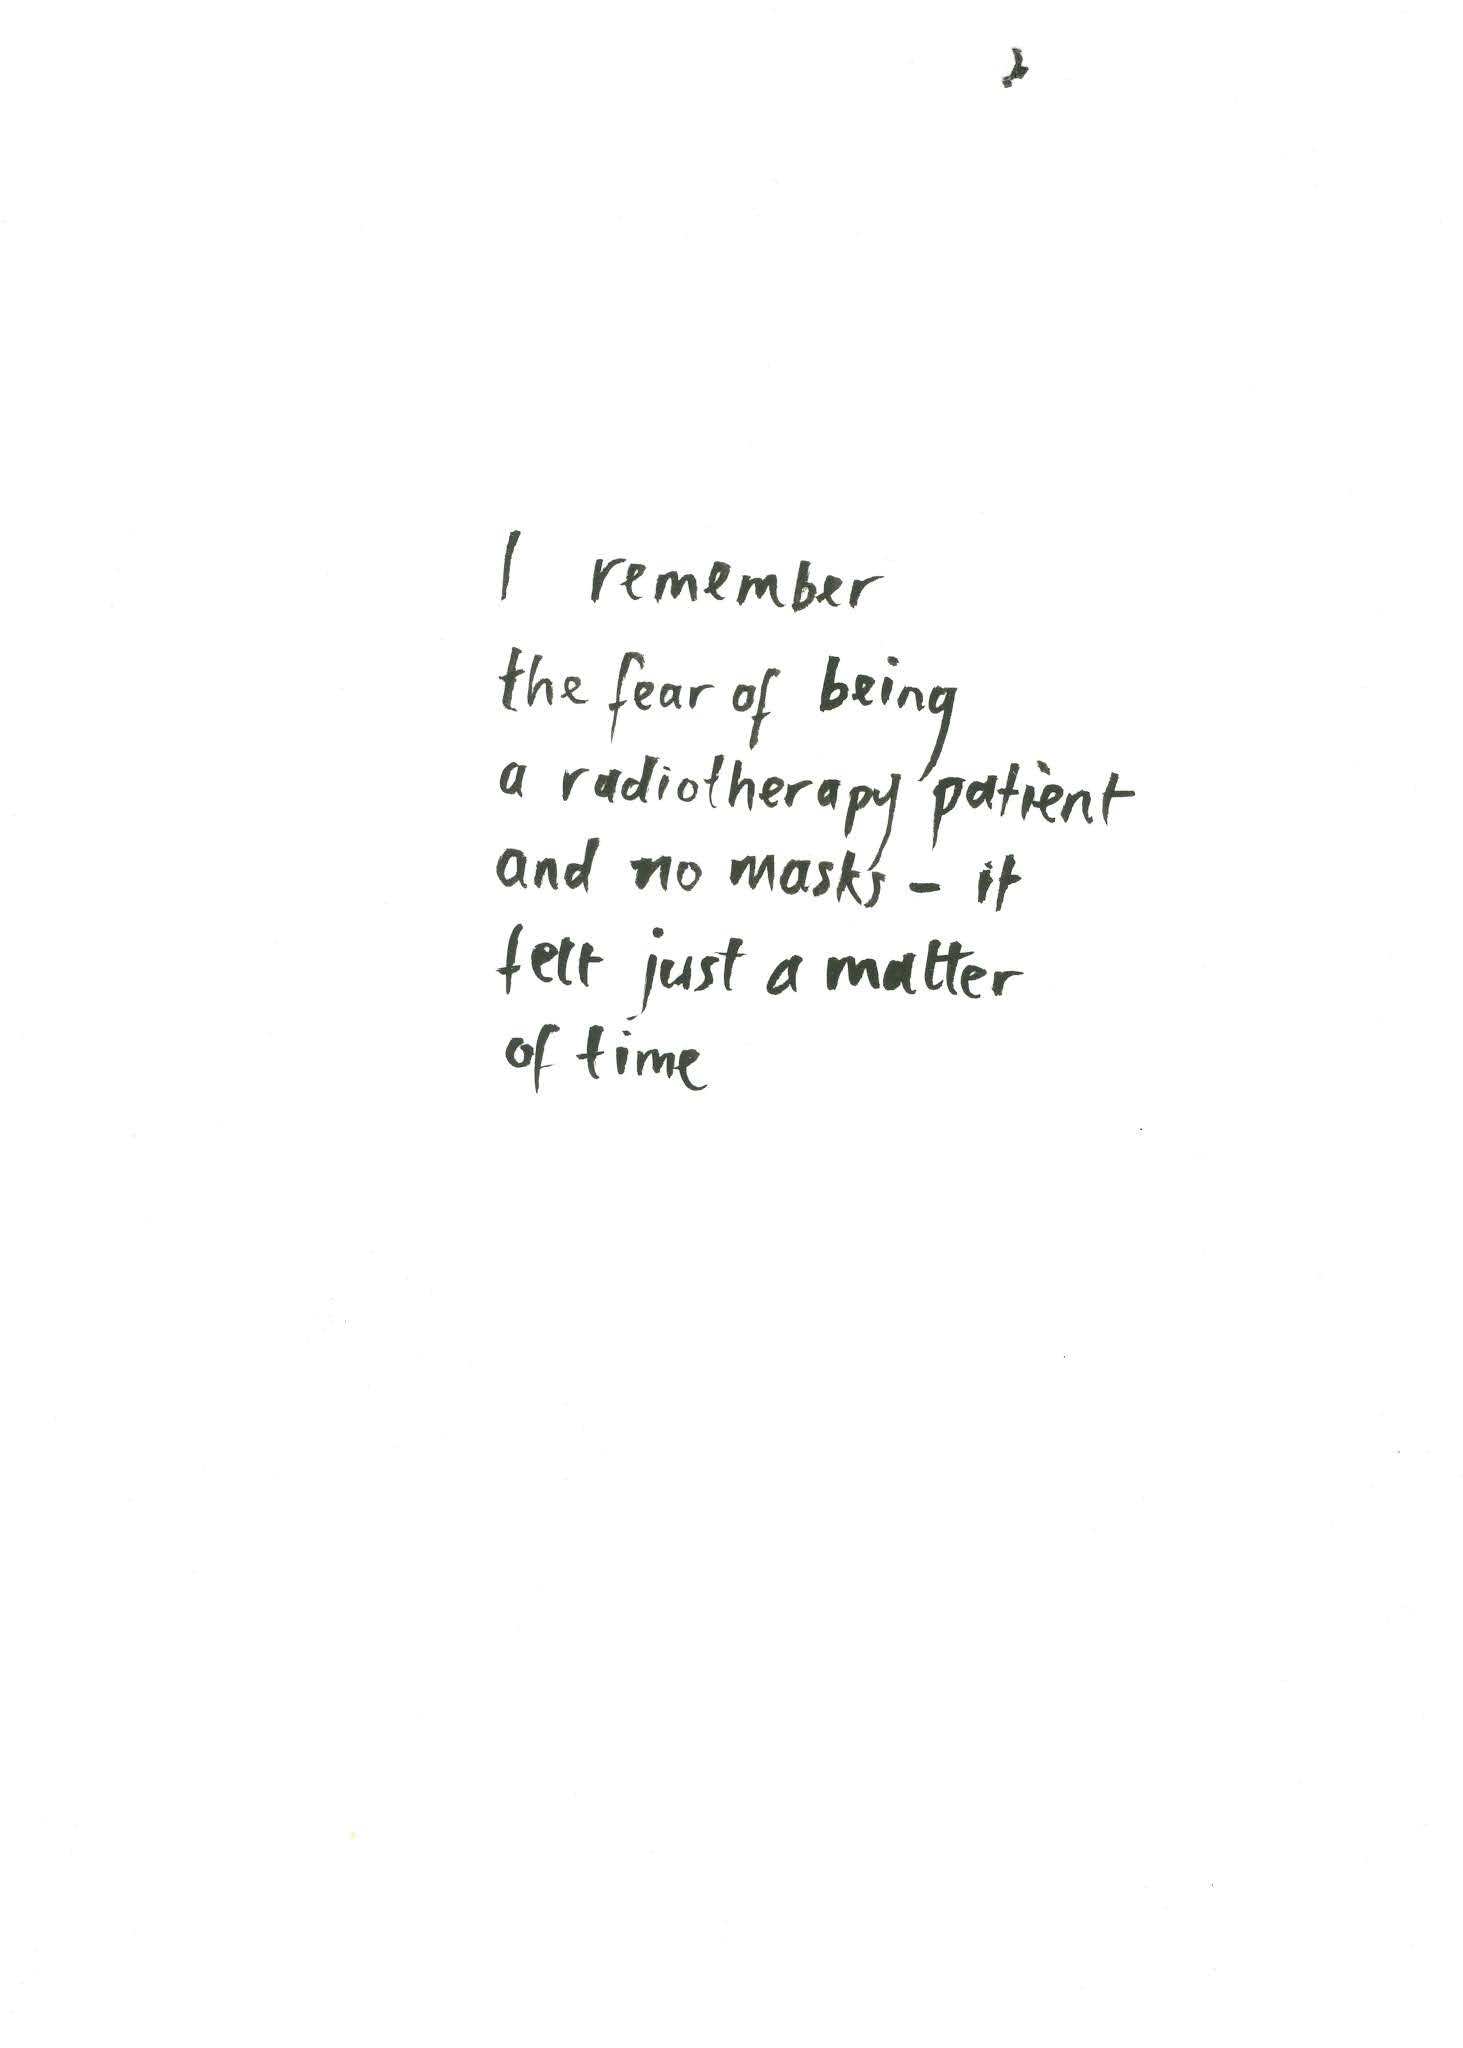 I remember
the fear of being
a radiotherapy patient
and no masks - it
felt just a matter
of time